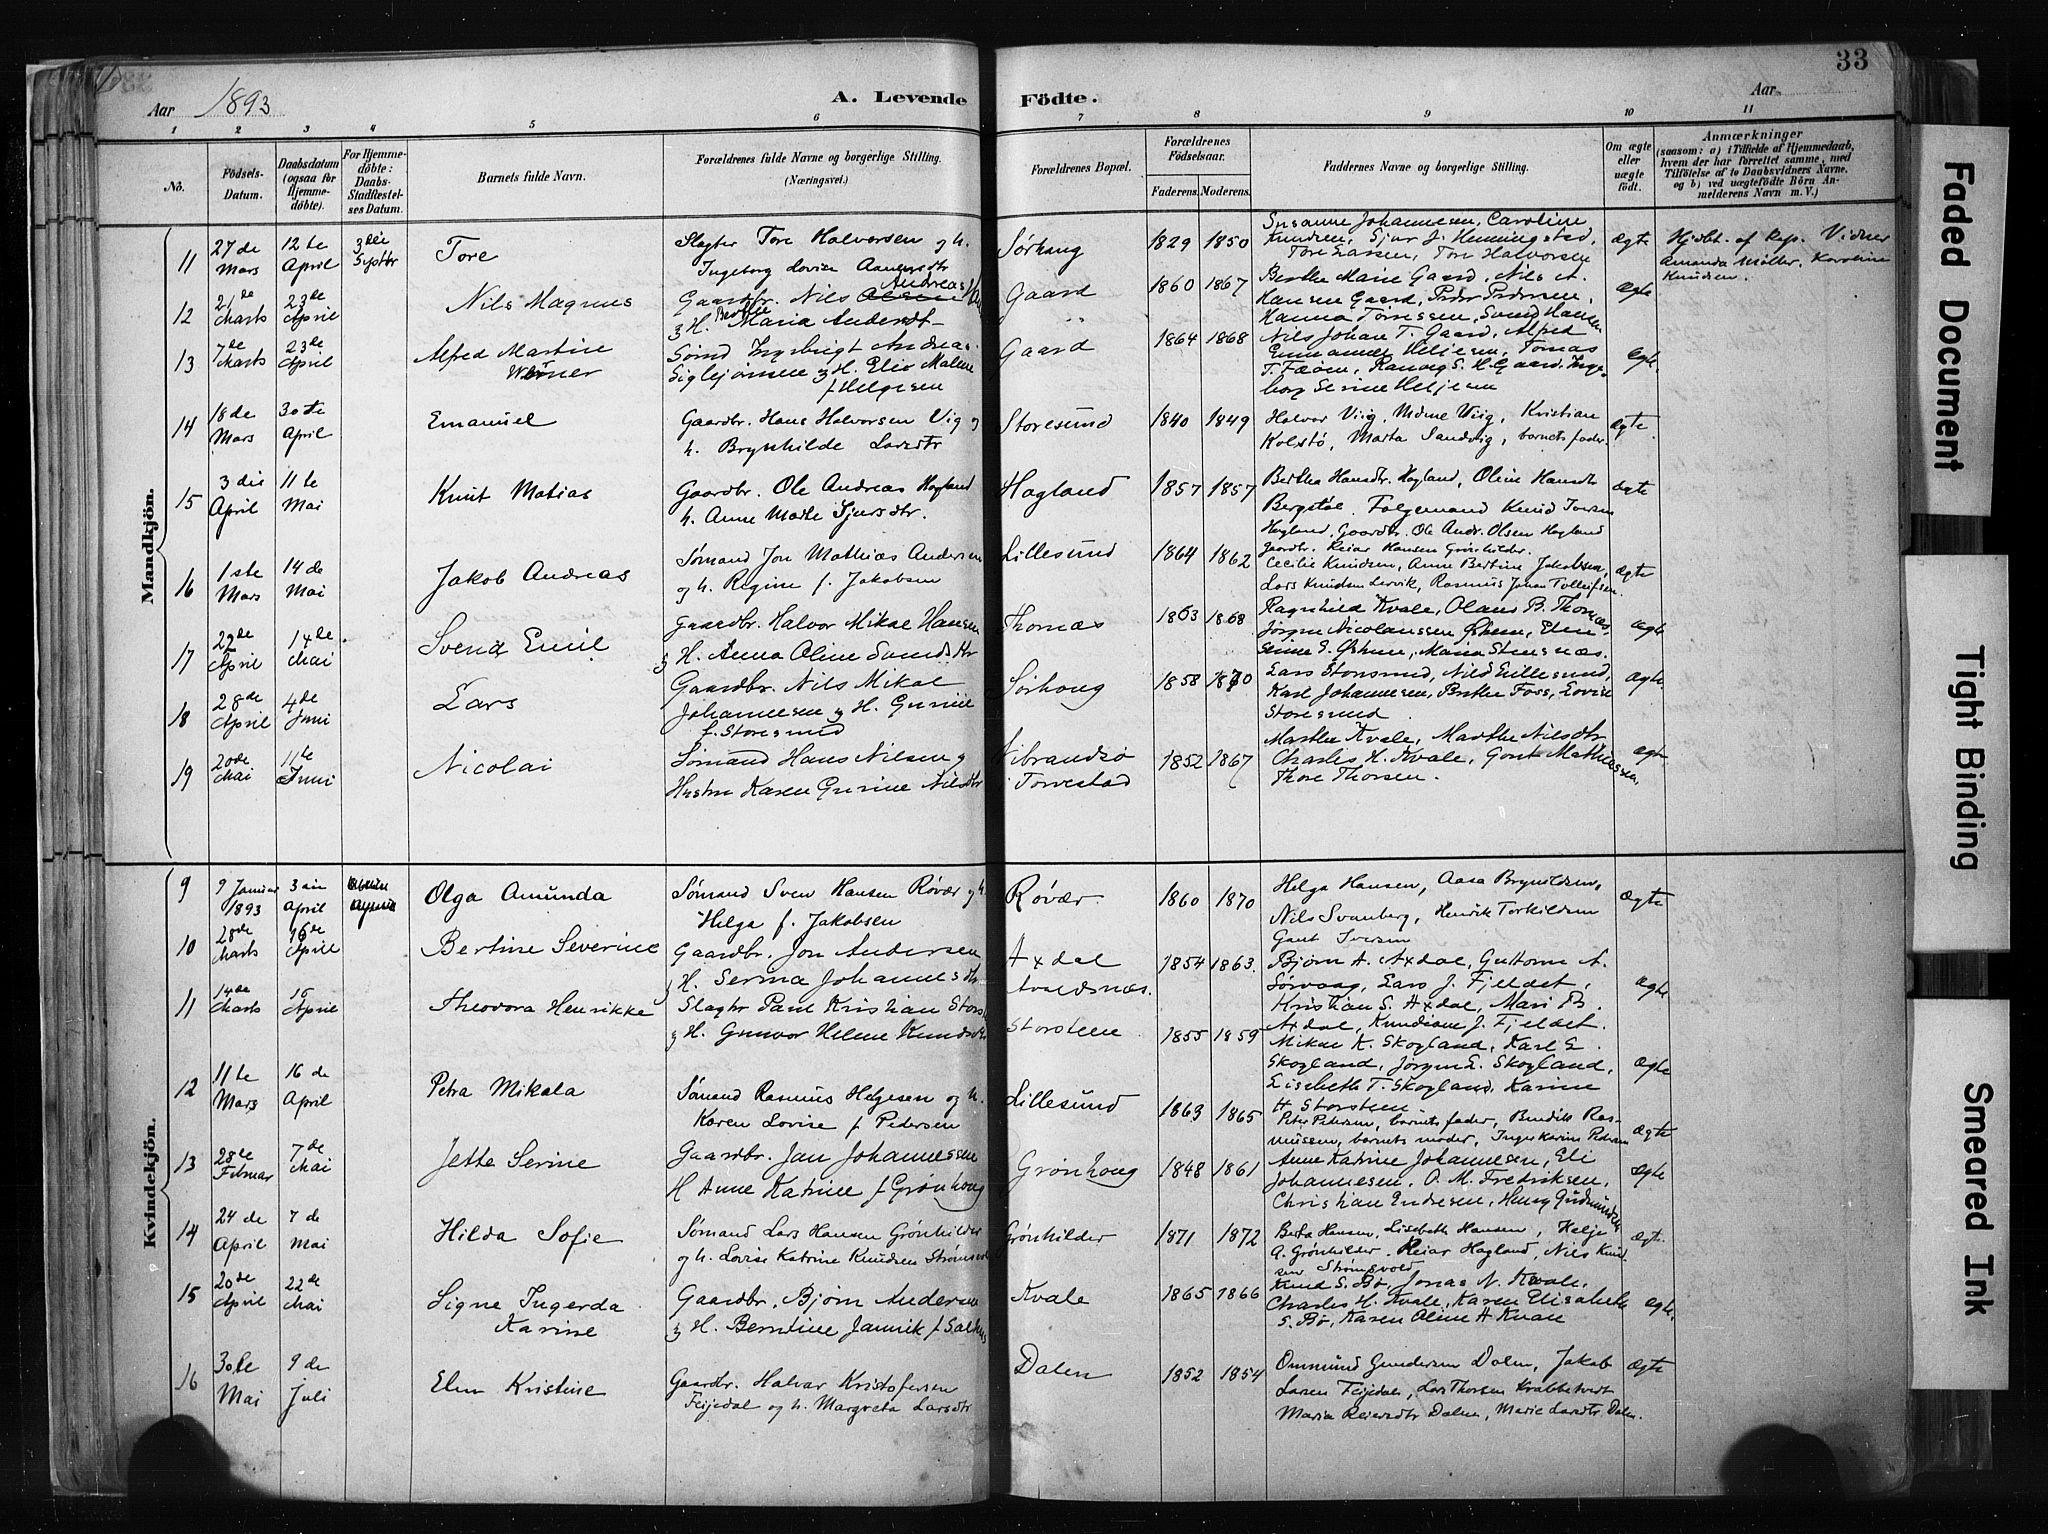 33
Aar 1893
A. Levende Födte.
Aar
1 2 3 4 5 6 7 8 9 10 11
No.
Födsels-Datum.
Daabsdatum (ogsaa for Hjemme-döbte).
For Hjemme-döbte: Daabs-Stadfæstel-ses Datum.
Barnets fulde Navn.
Forældrenes fulde Navne og borgerlige Stilling. (Næringsvei.)
Forældrenes Bopæl.
Forældrenes Födselsaar.
Faderens. Moderens.
Faddernes Navne og borgerlige Stilling.
Om ægte eller uægte født.
Anmærkninger
(saasom: a) i Tilfælde af Hjemmedaab, hvem der har forrettet samme, med Tilföielse af to Daabsvidners Navne, og b) ved uægtefödte Börn An-melderens Navn m. V.)
Mandkjön.
11 27de Mars 12te April 3die Septbr Tore
Slagter Tore Halvorsen og h.
Ingeborg Lovise
Sørhaug 1829 1850
Susanne Johannesen, Caroline
Knudsen, Sjur J. Henningstad,
Tore Larsen, Tore Halvorsen
ægte
Hjdbt. af Kap. Vidner
Amanda Miller, Karoline
Knudsen.
12 21de Marts 23de April Nils Magnus
Gaardbr. Nils Andreas
& H. Berthe Maria
Gaard 1860 1867
Berthe Marie Gaard, Nils A.
Hansen Gaard, Peder Pedersen,
Hanna Tørressen, Svend Hansen
ægte
13 7de Marts 23de April Alfred Martin
Werner
Sømd Ingebrigt Andreas
Siglejørnsen & H. Elis Malene
f Helgesen
Gaard 1864 1868
Nils Johan T. Gaard, Alfred
Emmanuel Heljesen, Tomas
T. Fæøen, Ranveig S. H. Gaard, Inge-
borg Serine Heljesen
Ægte.
14 18de Mars 30te April Emanuel
Gaardbr. Hans Halvorsen Vig og
h. Brynhilde Larsdtr
Storesund 1840 1849
Halvor Viig, Mdme Viig, Kristian
Kolstø, Marta Sandvig, barnets fader.
ægte.
15 3die April 11te Mai Knut Matias
Gaardbr. Ole Andreas Hagland
h. Anne Marte Sjursdtr.
Hagland 1857 1857
Bertha Hansdtr. Hagland, Oline Hansdtr
Bergstøl. Følgemand Knud Iversen
Hagland, Gaardbr. Ole Andr. Olsen Hagland
Gaardbr. Reiar Hansen Grønhilder.
ægte
16 1ste Mars 14de Mai Jakob Andreas
Sømand Jon Mathias Andersen
og h. Regine f. Jakobsen
Lillesund 1864 1862
Cecilie Knudsen, Anne Bertine Jakobsen,
Lars Knudsen Lervik, Rasmus Johan Tollefsen.
ægte
17 22de April 14de Mai Svend Emil
Gaardbr. Halvor Mikal Hansen
& H. Anna Oline Svendsdtr
Thornæs 1863 1868
Ragnhild Kvale, Olaus B. Thornæs,
Jørgen Nicolaussen Øshem, Elen
Serine E. Øshem, Maria Stensnæs.
ægte
18 28de April 4de Juni Lars
Gaardbr. Nils Mikal
Johannesen & H. Gurine
f. Storesund
Sørhaug 1858 1870
Lars Storesund, Nils Lillesund,
Karl Johannesen, Berthe Foss, Lovise
Storesund
ægte
19 20de Mai 11te Juni Nicolai
Sømand Hans Nilsen &
Hustru Karen Gurine Nilsdtr
Vibrandsø
i Torvestad 1852 1867
Marthe Kvale, Marthe Nilsdtr
Charles H. Kvale, Gout Mathiessen,
Thore Thorsen.
ægte
Kvindekjön.
9 9 Januar 1893 3die April Olga Amunda
Sømand Sven Hansen Røvær og h.
Helga f. Jakobsen
Røvær 1860 1870
Helga Hansen, Aasa Brynildsen,
Nils Svanberg, Henrik Torkildsen
Gaut Iversen
Ægte
10 28de Marts 16de April Bertine Severine
Gaardbr. Jon Andersen
& H. Serina Johannesdtr
Axdal
Avaldsnæs. 1854 1863.
Bjørn A. Axdal, Guttorm A.
Sørvaag, Lars J. Fjeldet,
Kristian S. Axdal, Mari B.
Axdal, Knudiane J. Fjeldet.
ægte
11 14de Marts 15 April Theodora Henrikke
Slagtr Paul Kristian Storst
& H. Gunvor Helene Knudsdtr
Storsteen 1855 1859
Mikal K. Skogland, Karl E.
Skogland, Jørgen E. Skogland,
Elisabeth T. Skogland, Karine
H Storsteen
ægte
12 11te Mars 16de April Petra Mikala
Sømand Rasmus Helgesen og h.
Karen Lovise f Pedersen
Lillesund 1863 1865
Peter Petersen, barnets fader, Bendikte Ras-
mussen, barnets moder, Inger Karine Pedersen
Ægte
13 28de Februar 7de Mai Jette Serine
Gaardbr. Jan Johannessen
H Anne Katrine f Grønhoug
Grønhoug 1848 1861
Anne Katrine Johannesen, Eli
Johannesen, O. M. Fredriksen,
Christian Endresen, Henry Gudmundsen
ægte
14 24de April 7de Mai Hilda Sofie
Sømand Lars Hansen Grønhilder
og h. Lovise Katrine Knudsen Strømsvold
Grønhilder 1871 1872
Berta Hansen, Lisebeth Hansen, Helje
A. Grønhilder. Reiar Hagland, Nils Knud-
sen Strømsvold
ægte.
15 20de April 22de Mai Signe Ingerda
Karine
Gaardbr. Bjørn Andersen
& H. Berntine Jannik f
Kvale 1865 1866
Knud S. Bø, Jonas N. Kvale,
Charles H. Kvale, Karen Elisabeth
S. Bø, Karen Oline H
ægte.
16 30te Mai 9de Juli Elen Kristine
Gaardbr. Halvar Kristofersen
Feijedal og h. Margreta Larsdtr
Dalen 1852 1854
Ommund Gundersen Dalen, Jakob
Larsen Feijedal, Lars Thorsen Krabbetvedt
Maria Reiersdtr Dalen, Marie Larsdtr Dalen.
Ægte
Faded Document
Tight Binding
Smeared Ink